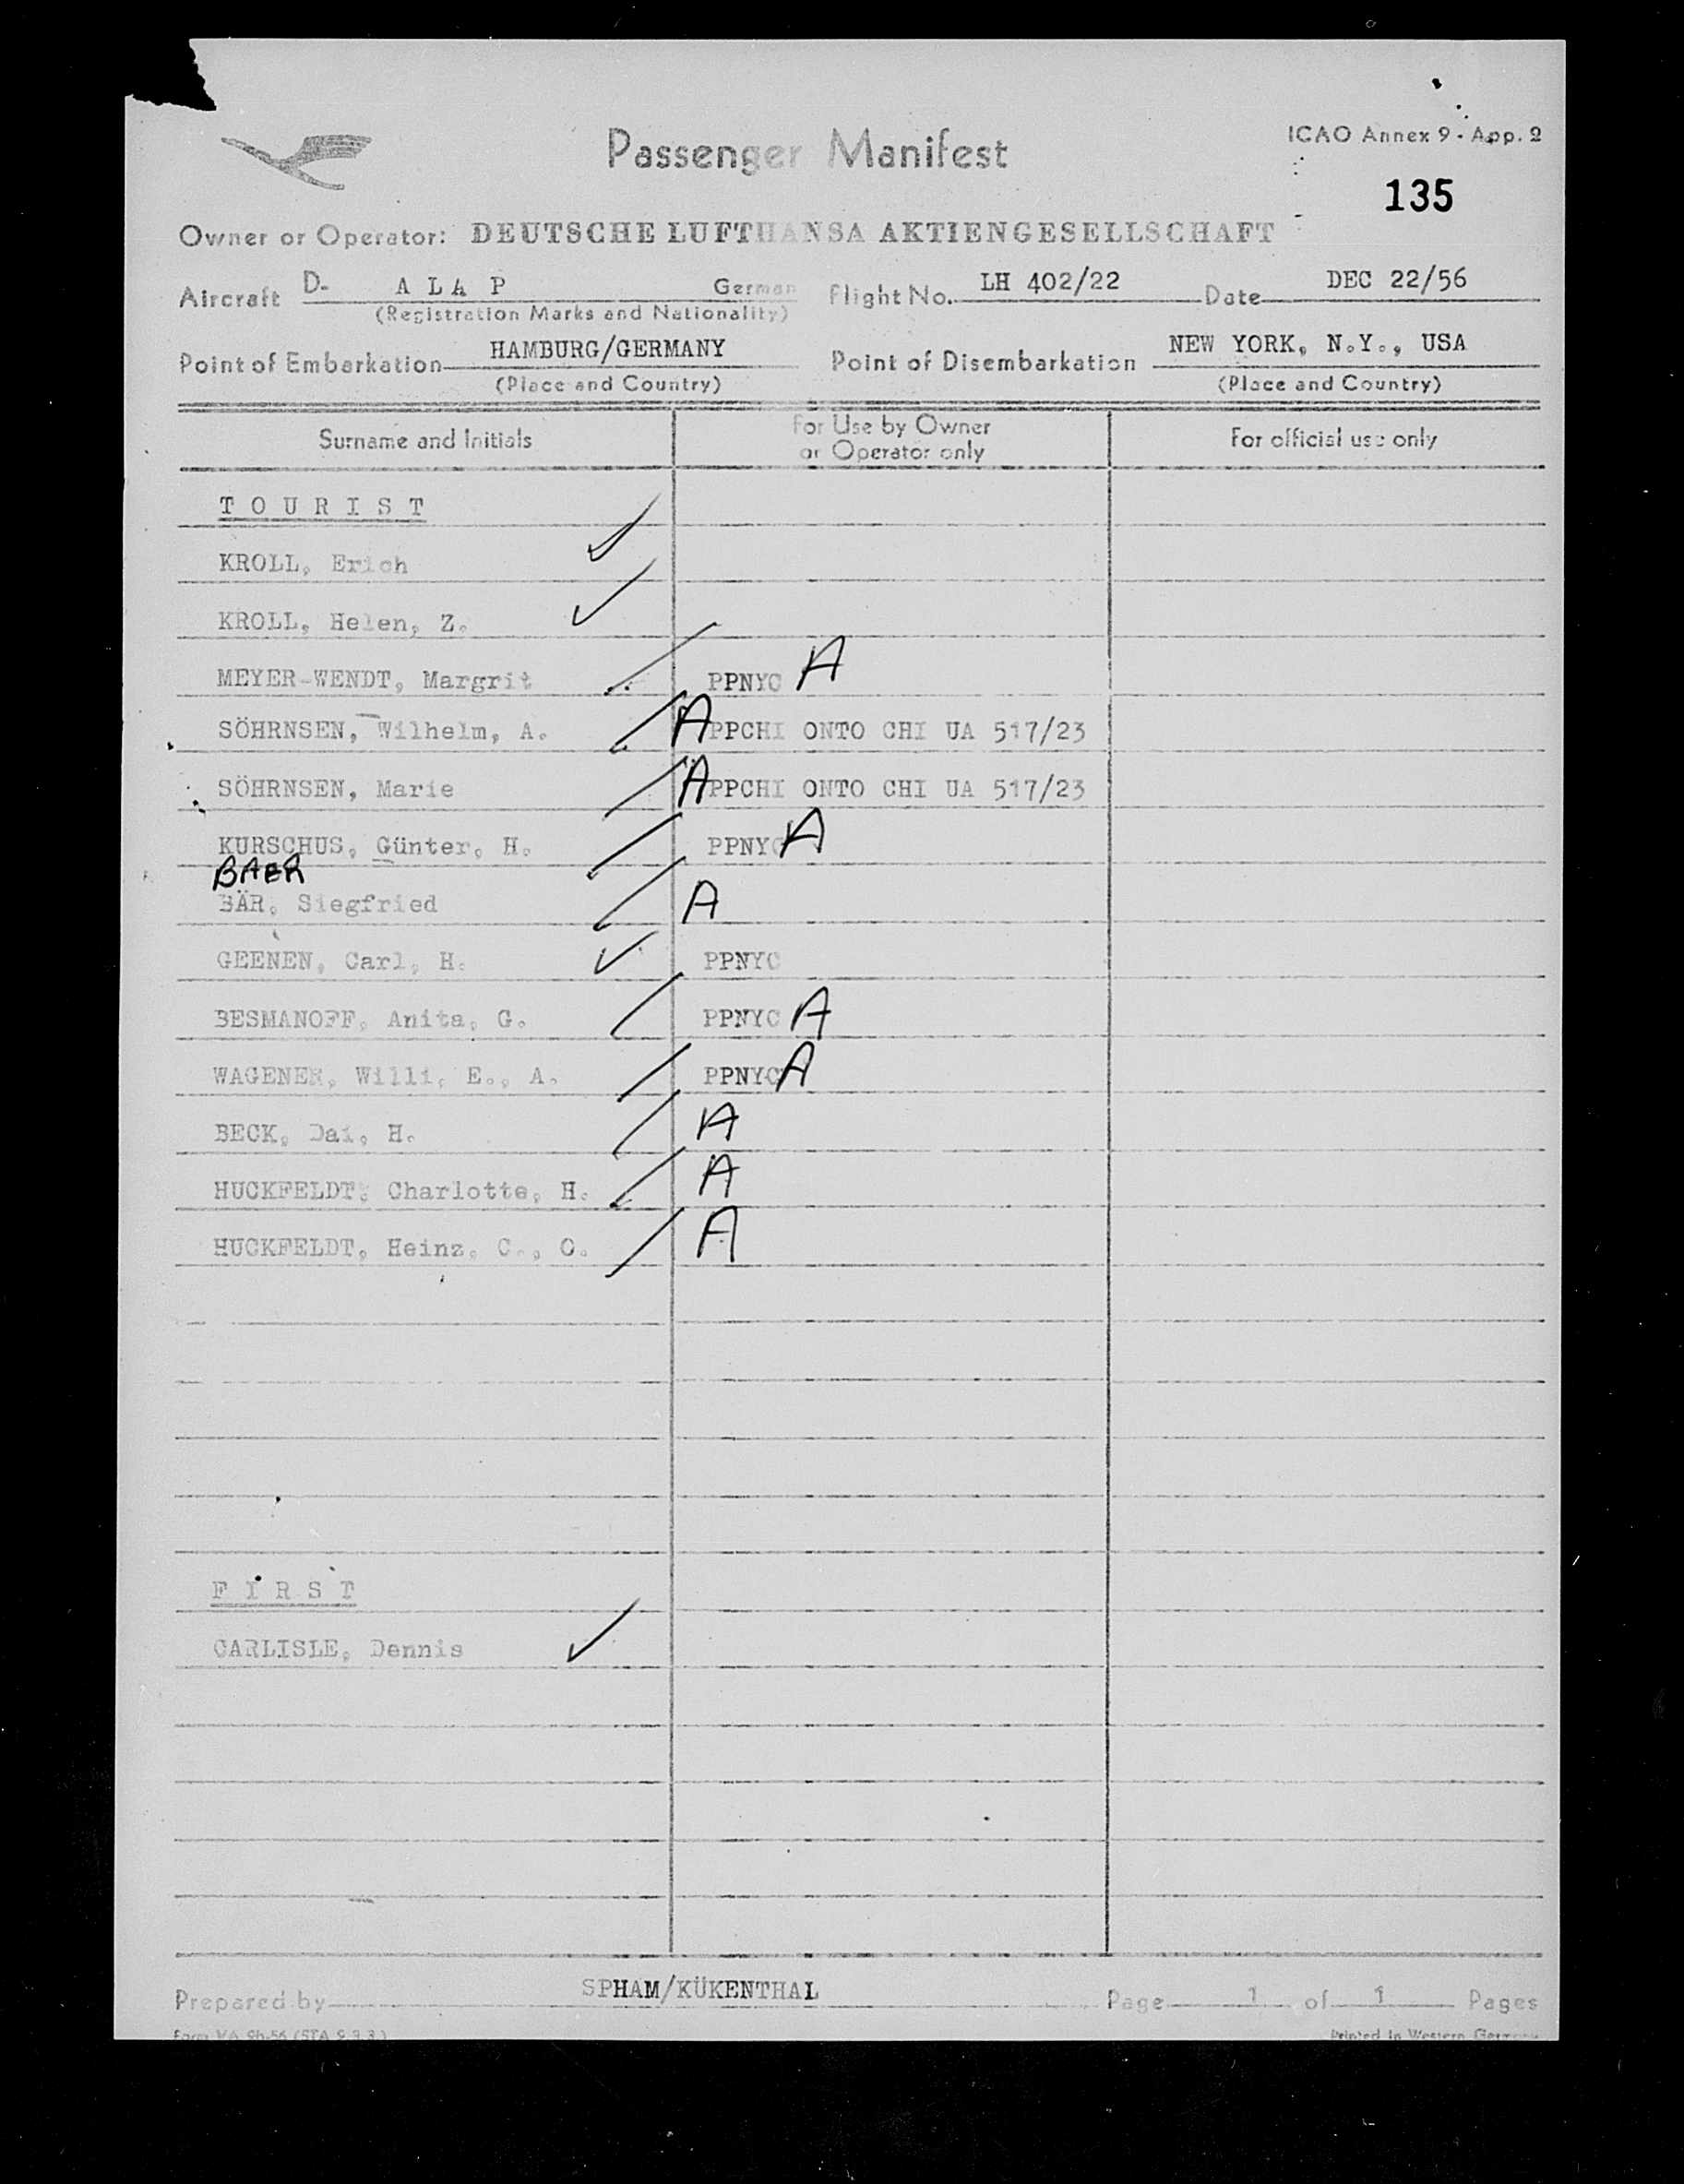 Passenger Manifest
ICAO Annex 9 - App. 2
135
Owner or Operator: DEUTSCHE LUFTHANSA AKTIENGESELLSCHAFT
Aircraft D- A L A P German Flight No. LH 402/22 Date DEC 22/56
(Registration Marks and Nationality)
Point of Embarkation HAMBURG/GERMANY Point of Disembarkation NEW YORK, N.Y., USA
(Place and Country) (Place and Country)
Surname and Initials For Use by Owner or Operator only For official use only
T O U R I S T
KROLL, Erich
KROLL, Helen, Z.
MEYER-WENDT, Margrit PPNYC A
SÖHRNSEN, Wilhelm, A. A PPCHI ONTO CHI UA 517/23
SÖHRNSEN, Marie A PPCHI ONTO CHI UA 517/23
KURSCHUS, Günter, H. PPNYC A
BAER
BÄR, Siegfried A
GEENEN, Carl, H. PPNYC
BESMANOFF, Anita, G. PPNYC A
WAGENER, Willi, E., A. PPNYC A
BECK, Dai, H. A
HUCKFELDT, Charlotte, H. A
HUCKFELDT, Heinz, C., O. A
F I R S T
CARLISLE, Dennis
Prepared by SPHAM/KÜKENTHAL Page 1 of 1 Pages
Printed in Western